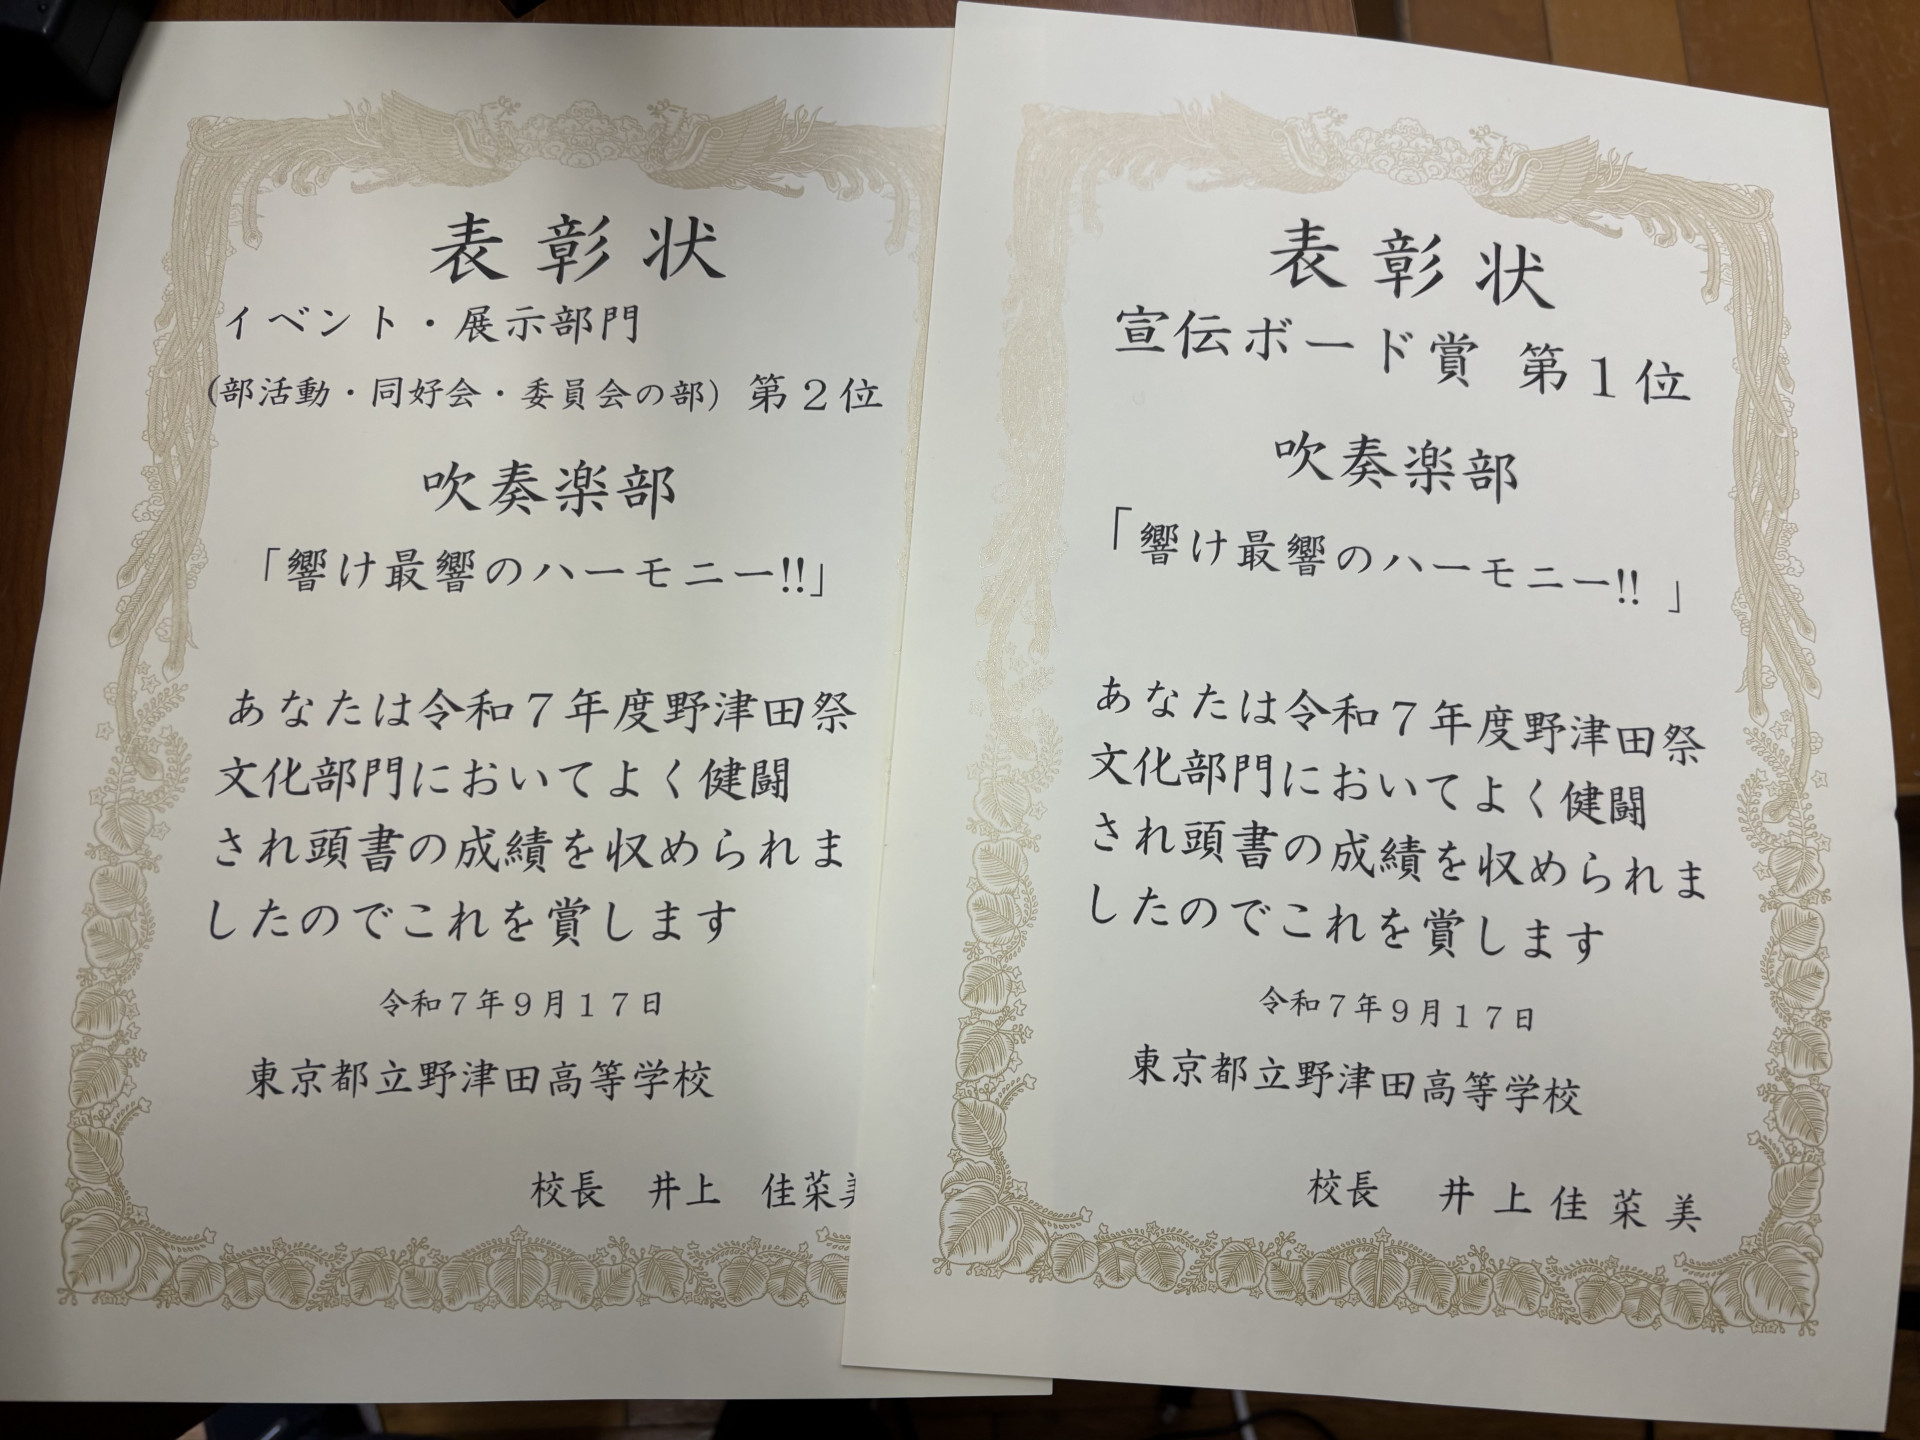 表彰状
イベント・展示部門
(部活動・同好会・委員会の部) 第2位
吹奏楽部
「響け最響のハーモニー!!」
あなたは令和7年度野津田祭
文化部門においてよく健闘
され頭書の成績を収められま
したのでこれを賞します
令和7年9月17日
東京都立野津田高等学校
校長 井上 佳菜美
表彰状
宣伝ボード賞 第1位
吹奏楽部
「響け最響のハーモニー!! 」
あなたは令和7年度野津田祭
文化部門においてよく健闘
され頭書の成績を収められま
したのでこれを賞します
令和7年9月17日
東京都立野津田高等学校
校長 井上佳菜美